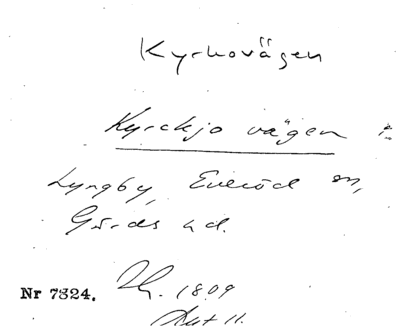 Kyrkovägen
Kyrckjo vägen i
Lyngby, Everöd sn,
Gärds hd.
Nr 7324. Th. 1809
Akt 11.